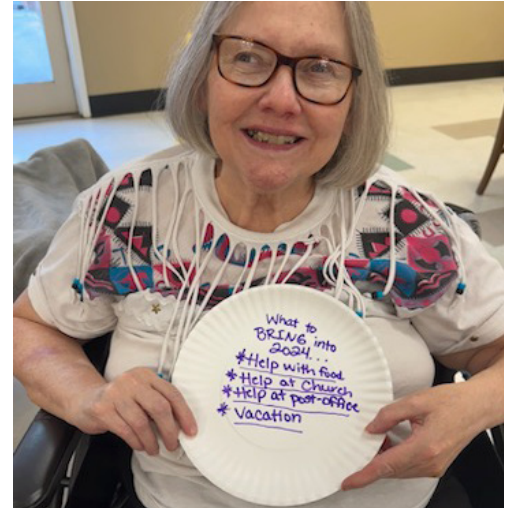 What to
BRING into
2024...
*Help with food
*Help at Church
*Help at post-office
* Vacation